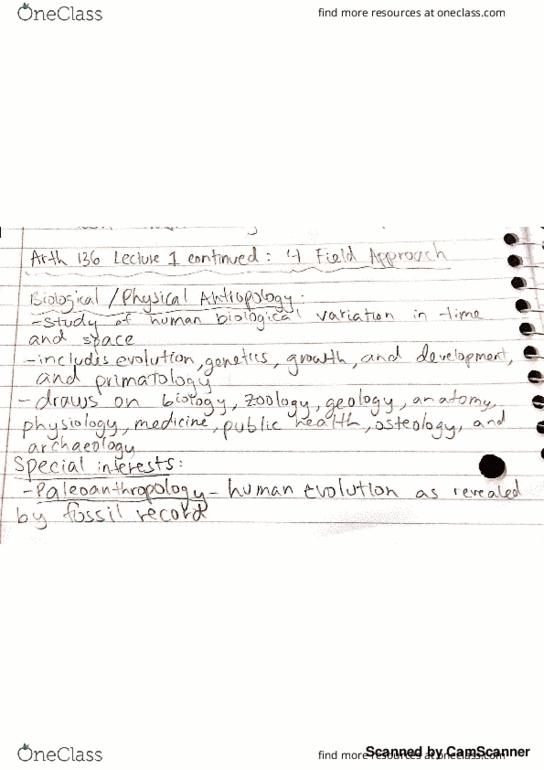 OneClass
find more resources at oneclass.com
Arth 136 Lecture 1 continued: 4 Field Approach
Biological/Physical Antropology:
-study of human biological variation in time
and space
-includes evolution, genetics, growth, and development,
and primatology
- draws on biology, zoology, geology, anatomy,
physiology, medicine, public health, osteology, and
archaeology
Special interests:
-Paleoanthropology- human evolution as revealed
by fossil record
OneClass
find more resources at oneclass.com
Scanned by CamScanner